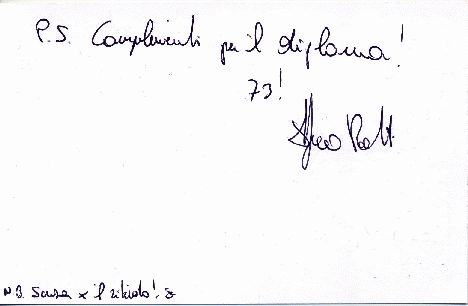 P.S. Complimenti per il diploma!
73!
N.B. Scusa x il ritardo!